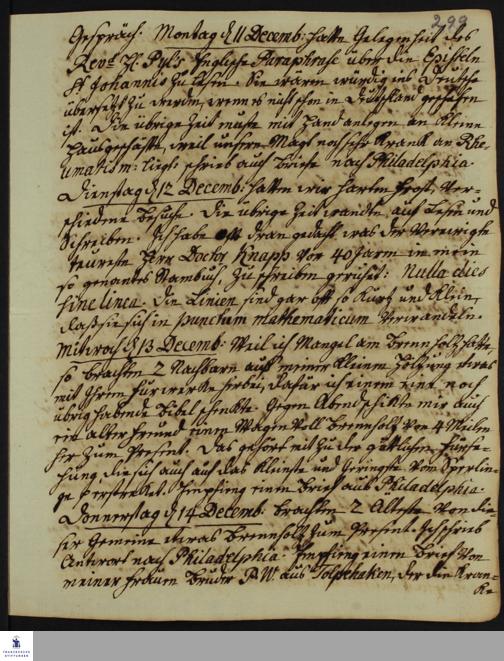 299
Gespräch. Montag d 11 Decemb: hatte Gelegenheit des
Revd H. Pyl's Englische Paraphrase über die Episteln
St Johannis zu lesen. Sie wären würdig ins Deutsche
übersetzt zu werden, wenn es nicht schon in Deutschland geschehen
ist. Die übrige Zeit muste mit Hand anlegen an kleine
Hausgeschäffte, weil unsere Magd noch sehr kranck an Rhe-
umatism: liegt. schrieb auch Briefe nach Philadelphia.
Dienstag d 12 Decemb: hatten wir harten Frost, Ver-
schiedene Besuche. Die übrige Zeit wandte auf Lesen und
Schreiben. Ich habe oft dran gedacht was der Verewigte
teureste Herr Doctor Knapp vor 40 Jaren in mein
so genantes Stambuch, zu schreiben geruhet: Nulla dies
sine linea. Die Linien sind gar oft so kurz und klein,
daß sie sich in punctum mathematicum verwandeln.
Mitwoch d 13 Decemb: Weil ich Mangel am Brennholz hatte,
so brachten 2 Nachbarn auß meiner kleinen Holzung etwas
mit ihrem Fuhrwerke herbei, dafür ich einem eine noch
übrig habende Bibel schenkte. Gegen Abend schikte mir auch
ein alter Freund einen Wagen voll Brennholz von 4 Meilen
her zum Present. Das gehört mit zu der göttlichen Fürse-
hung, die sich auch auf das kleinste und geringste vom Sperlin-
ge erstreket. Empfing einen Brief aus Philadelphia.
Donnerstag d 14 Decemb: brachten 2 Älteste von die-
ser Gemeine etwas Brennholz zum Present. Schrieb
Antwort nach Philadelphia. Empfing einen Brief von
meiner Frauen Bruder P. W. aus Tolpehaken, der die Kran-
ke
FRANCKESCHE STIFTUNGEN